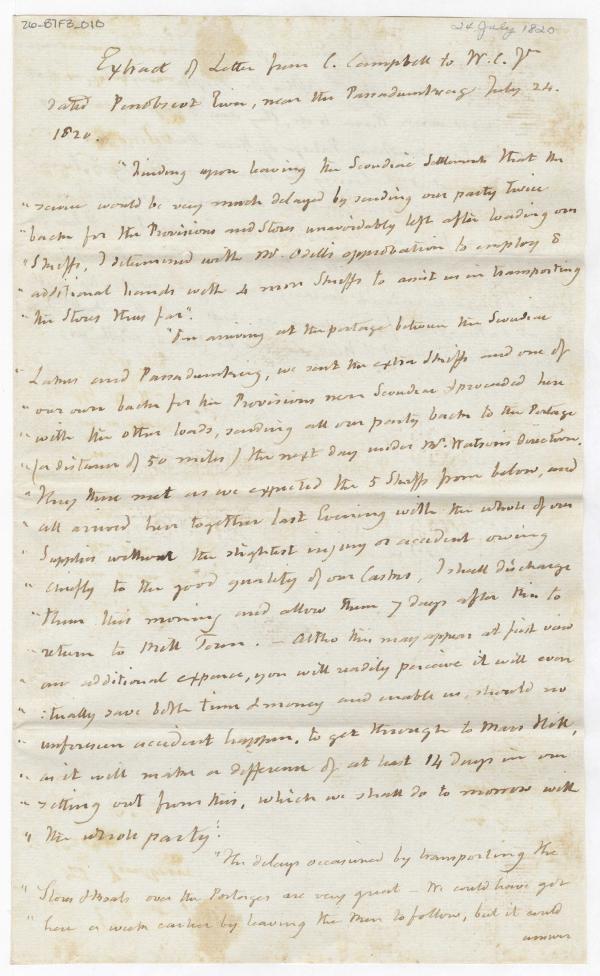 26-B7F3_01D
24 July 1820
Extract of Letter from C. Campbell to W. C. Jr
dated Penobscot River, near the Passadumkeag July 24.
1820.
"Finding upon leaving the Scoudiac Settlement that the
" service would be very much delayed by sending our party twice
" back for the Provisions and Stores unavoidably left after loading our
" Skiffs, I determined with Mr. Odell's approbation to employ 8
" additional hands with 4 more Skiffs to assist us in transporting
" the Stores thus far".
"On arriving at the portage between the Scoudiac
" Lakes and Passadumkeag, we sent the extra Skiffs and one of
" our own back for the Provisions near Scoudiac & proceeded here
" with the other loads, sending all our party back to the Portage
" (a distance of 50 miles) the next day under Mr. Watsons Direction.
" They there met as we expected the 5 Skiffs from below, and
" all arrived here together last Evening with the whole of our
" Supplies without the slightest injury or accident owing
" chiefly to the good quality of our Casks, I shall discharge
" them this morning and allow them 7 days after this to
" return to Mill Town. - Altho this may appear at first view
" an additional expence, you will readily perceive it will even
" :tually save both time & money and enable us, should no
" unforeseen accident happen, to get through to Mars Hill,
" as it will make a difference of at least 14 days in our
" setting out from this, which we shall do to morrow with
" the whole party".
"The delays occasioned by transporting the
" Stores & Boats over the Portages are very great - We could have got
" here a week earlier by leaving the Men to follow, but it could
answer